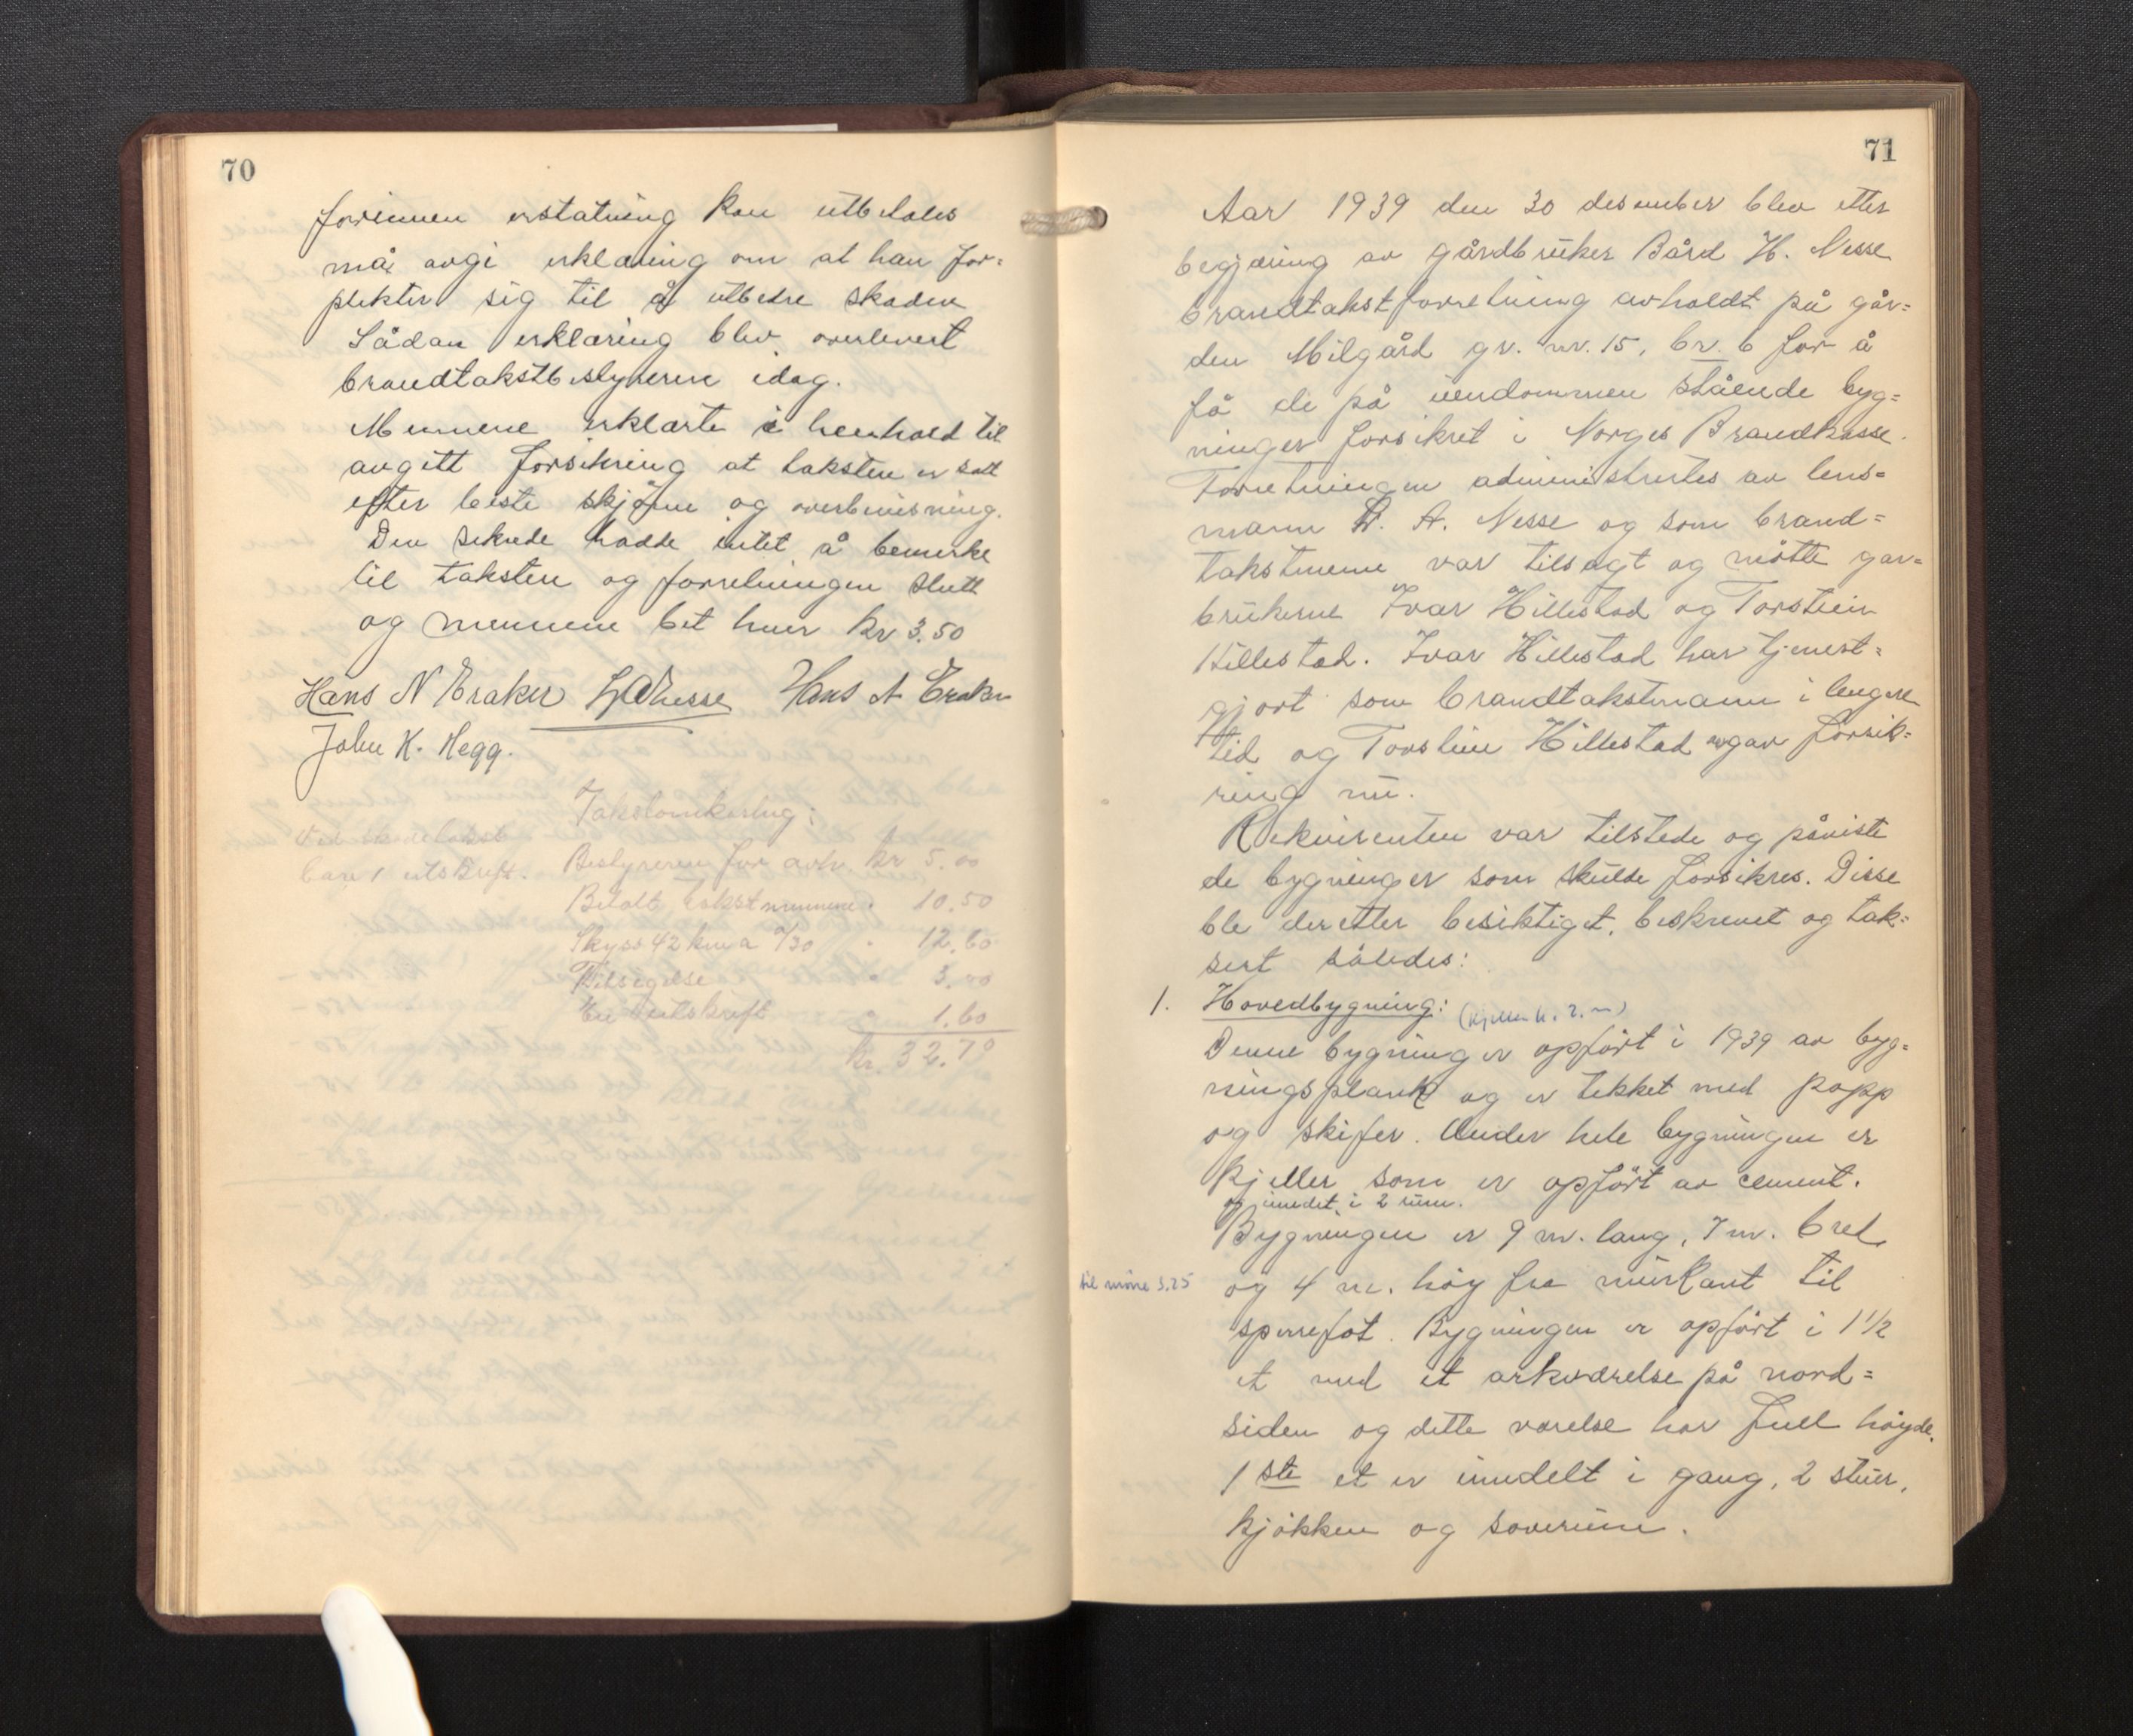 70
forinnen erstatning kan utbetales
må avgi erklæring om at han for=
plikter sig til å utbedre skaden
Sådan erklæring blev overlevert
brandtakstbestyreren idag.
Mennene erklærte i henhold til
avgitt forsikring at taksten er satt
efter beste skjønn og overbevisning.
Den sikrede hadde intet å bemerke
til taksten og forretningen slutt
og mennene bet hver kr 3.50
Hans N Eraker Hans A Eraker
John K. Hegg.
Takstomkostng:
Ved skadetakst
bare 1 utskrift.
Bestyreren for avh. kr 5.00
Betalt takstmennene " 10.50
Skyss 42 km a 0/30 " 12.60
Tilsigelse " 3.00
En utskrift " 1.60
Kr. 32.70
71
Aar 1939 den 30 desember blev etter
begjæring av gårdbruker Bård H. Nesse
brandtakstforretning avholdt på går=
den Milgård gr. nr. 15, br. 6 for å
få de på eiendommen stående byg=
ninger forsikret i Norges Brandkasse.
Forretningen administrertes av lens=
mann A. Nesse og som brand=
takstmenn var tilsagt og møtte gar=
brukerne Ivar Hillestad og Torstein
Hillestad. Ivar Hillestad har tjenest=
gjort som brandtakstmann i lengere
tid og Torstein Hillestad avgav forsik=
ring nu.
Rekvirenten var tilstede og påviste
de bygninger som skulde forsikres. Disse
ble deretter besiktiget, beskrevet og tak=
sert således:
1. Hovedbygning: (kjeller h. 2. m)
Denne bygning er opført i 1939 av byg=
ningsplank og er tekket med papp
og skifer. Under hele bygningen er
kjeller som er opført av cement.
og innedet i 2 rum.
Bygningen er 9 m. lang, 7 m. bred
til møne 5.25
og 4 m. høy fra murkant til
sperrefot. Bygningen er opført i 1 1/2
et med et arkværelse på nord=
siden og dette værelse har full høyde.
1ste et er inndelt i gang, 2 stuer,
kjøkken og soverum.